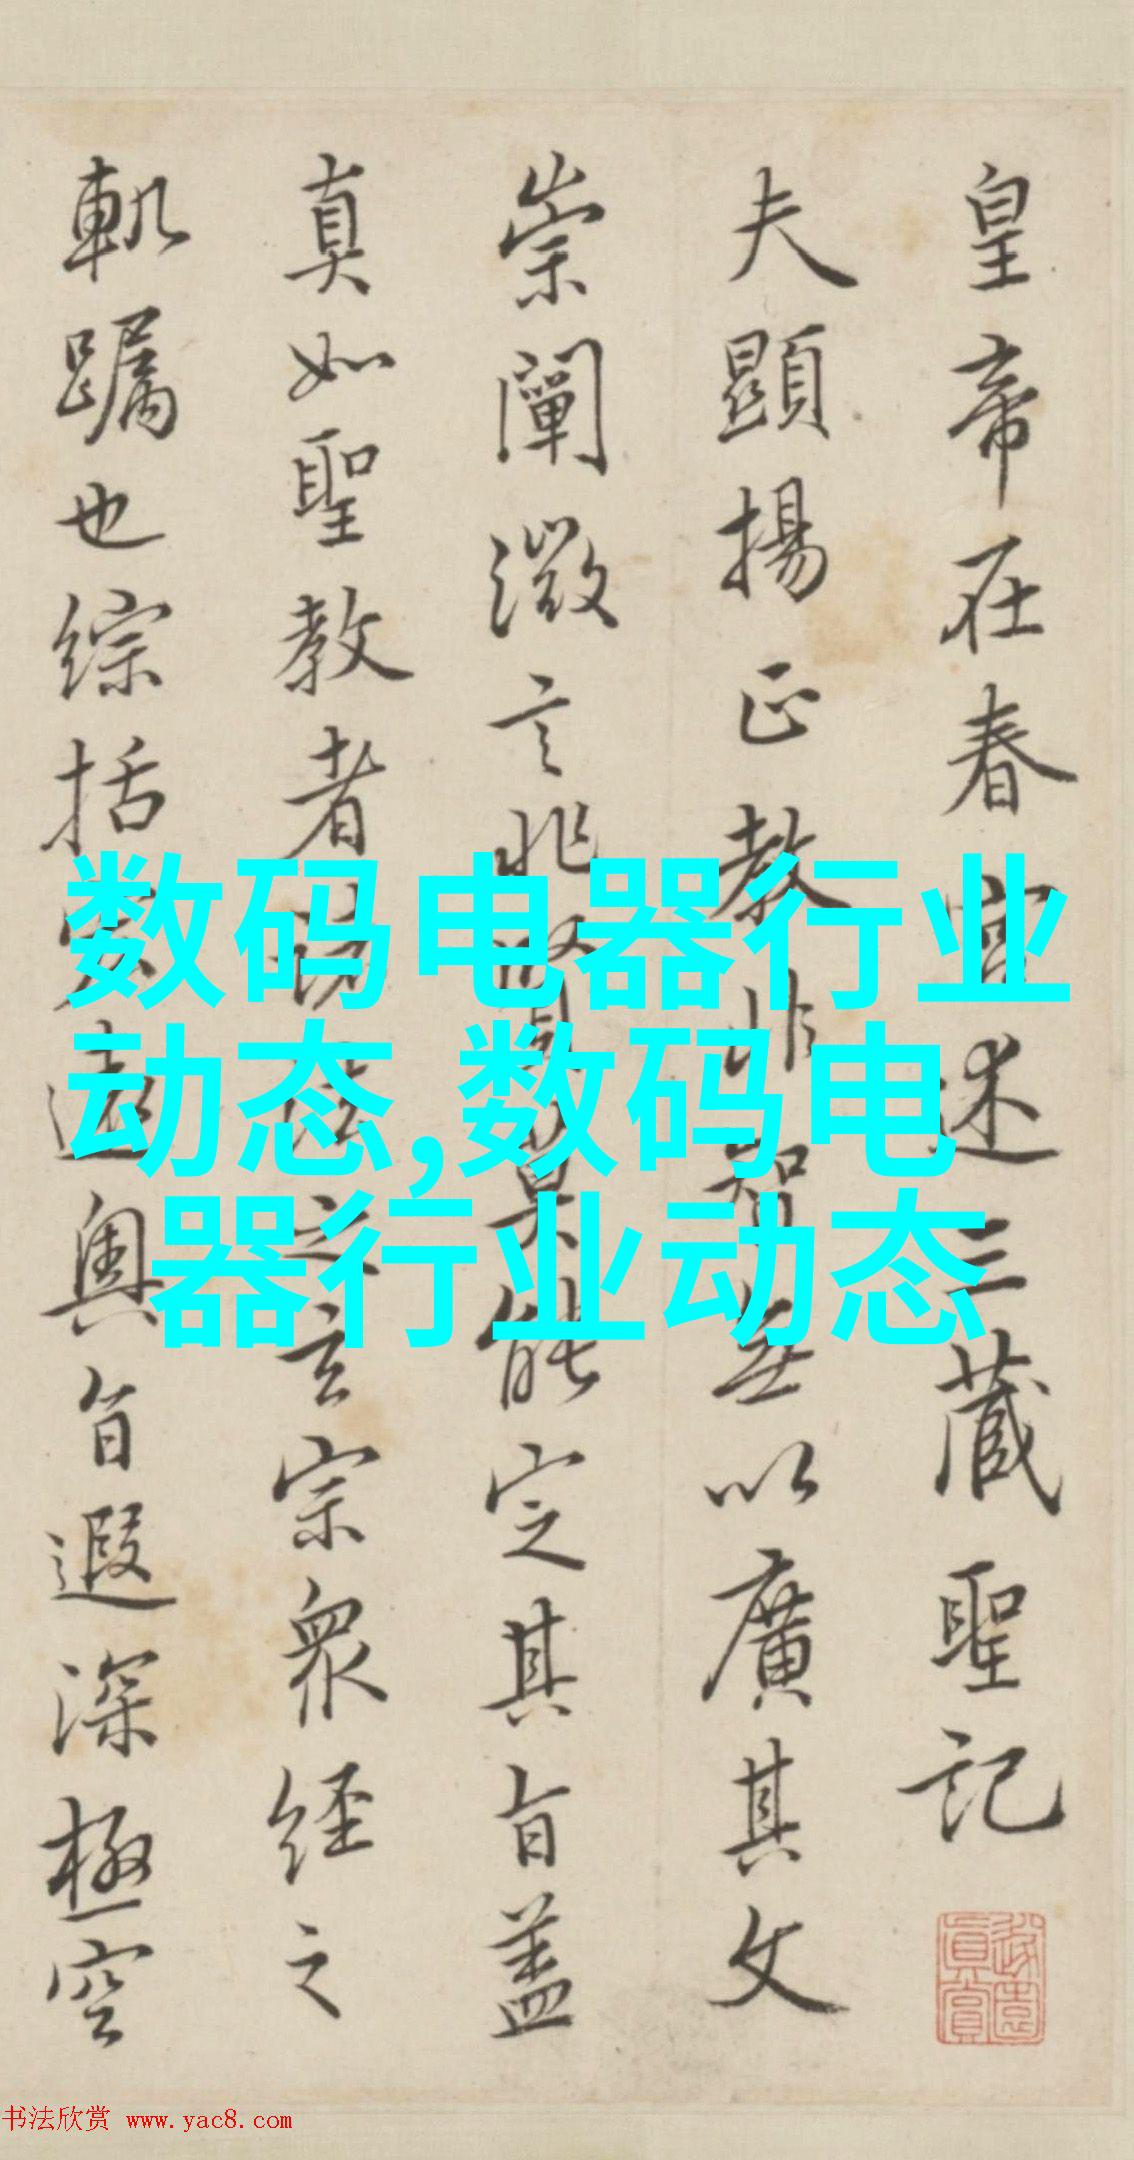 皇帝在春宮述三藏聖記
夫顯揚正教非智無以廣其文
崇闡微言非賢莫能定其旨蓋
真如聖教者諸法之玄宗衆經之
軌躅也綜括宏遠奧旨遐深極空
数码电器行业
动态,数码电
器行业动态
书法欣赏 www.yac8.com